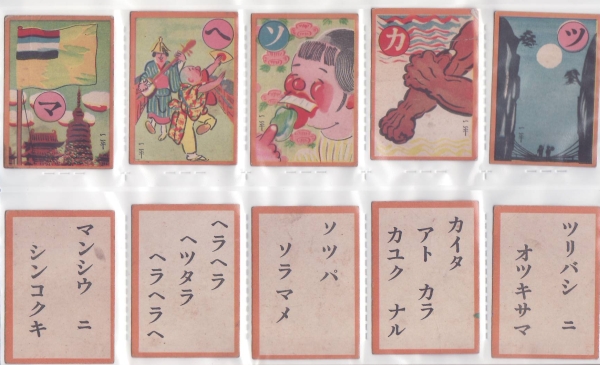 マ
ヘ
ソ
カ
ツ
マンシウ ニ
シンコクキ
ヘラヘラ
ヘツタラ
ヘラヘラヘ
ソツパ
ソラマメ
カイタ
アト カラ
カユク ナル
ツリバシ ニ
オツキサマ